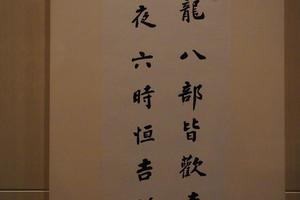 龍八部皆歡
夜六時恒吉